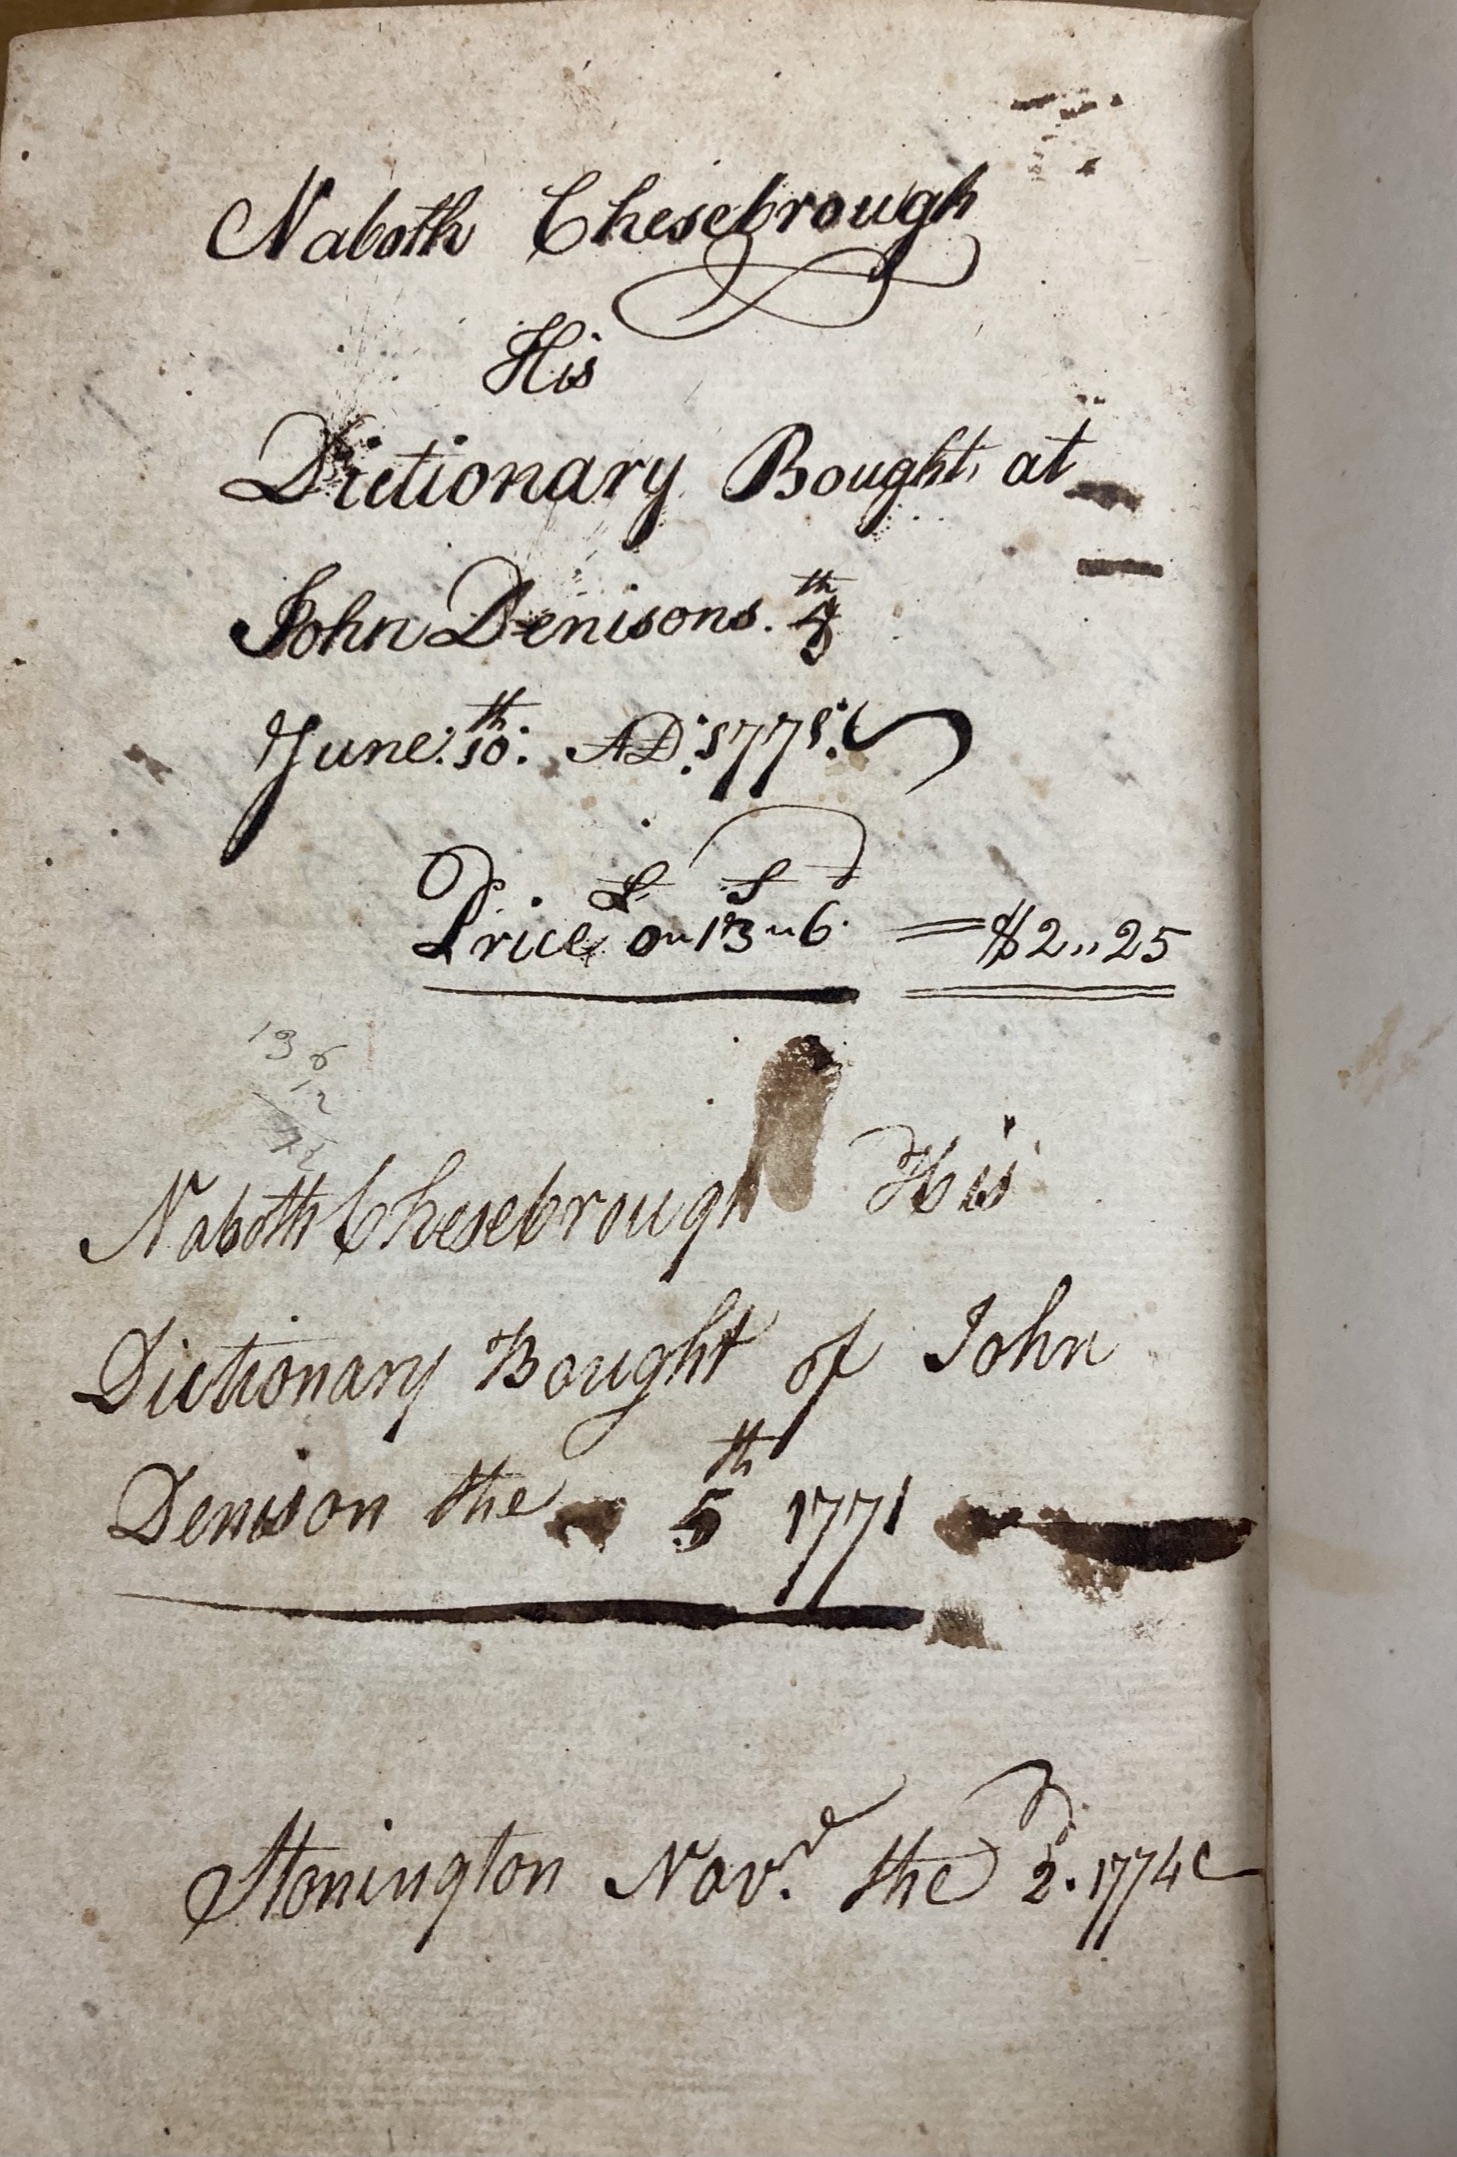 Naboth Chesebrough
His
Dictionary Bought at
John Denisons. 5th
June: 10th: AD: 1771:
£ S d
Price 0 " 13 " 6 = $2,,25
13 6
12
Naboth Chesebrough His
Dictionary Bought of John
Denison the 5th 1771
Stonington Nov.r the 2d. 1774